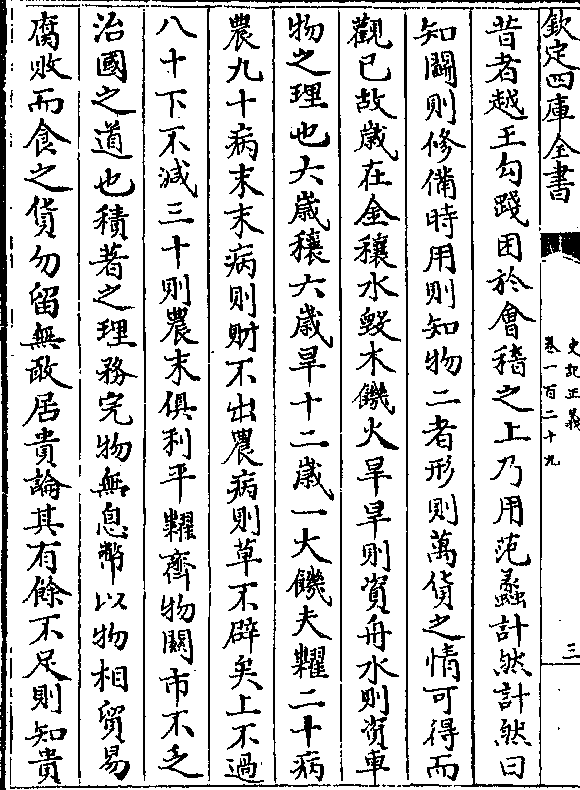 欽定四庫全書
史記正義
卷一百二十九
三
昔者越王勾踐困於會稽之上乃用范蠡計然計然曰
知鬬則修備時用則知物二者形則萬貨之情可得而
觀已故歳在金穰水毁木饑火旱旱則資舟水則資車
物之理也六歳穰六歳旱十二歳一大饑夫糶二十病
農九十病末末病則財不出農病則草不辟矣上不過
八十下不減三十則農末俱利平糶齊物關市不乏
治國之道也積著之理務完物無息幣以物相貿易
腐敗而食之貨勿留無敢居貴論其有餘不足則知貴